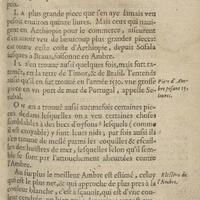 poix.
LA plus grande piece que j'en aye jamais veu
pesoit environ quinze livres. Mais ceux qui navi-
gent en Aethiopie pour le commerce, asseurent
d'en avoir veu de beaucoup plus grandes pieces:
est toute ceste coste d'Aethiopie, depuis Sofala
jusques à Brava, foisonne en Ambre.
IL s'en trouve aussi quelques fois, mais fort ra-
rement, en la terre de Timor, & de Brasil. J'entendis
qu'il en fut trouvé en l'année 1530. vne grosse
en un port de mer de Portugal, appelle Se-
tubal.
ON en a trouvé aussi aucunefois certaines pie-
dedans lesquelles on a veu certaines choses
semblables à des becs d'oysons lesquels (comme
croyable) y font leurs nids; par fois aussi il
s'en trouve de meslé parmi les coquilles & escail-
les des huistres de mer, lesquelles selon qu'il sem-
ble se sont par attouchement aheurtées contre
l'Ambre.
Au surplus le meilleur Ambre est estimé, celuy
qui est le plus net, qui approche de plus prés à la
couleur blanche, c'est à
Piece d'Am-
bre pesant 15.
livres.
Eslection de
l'Ambre.